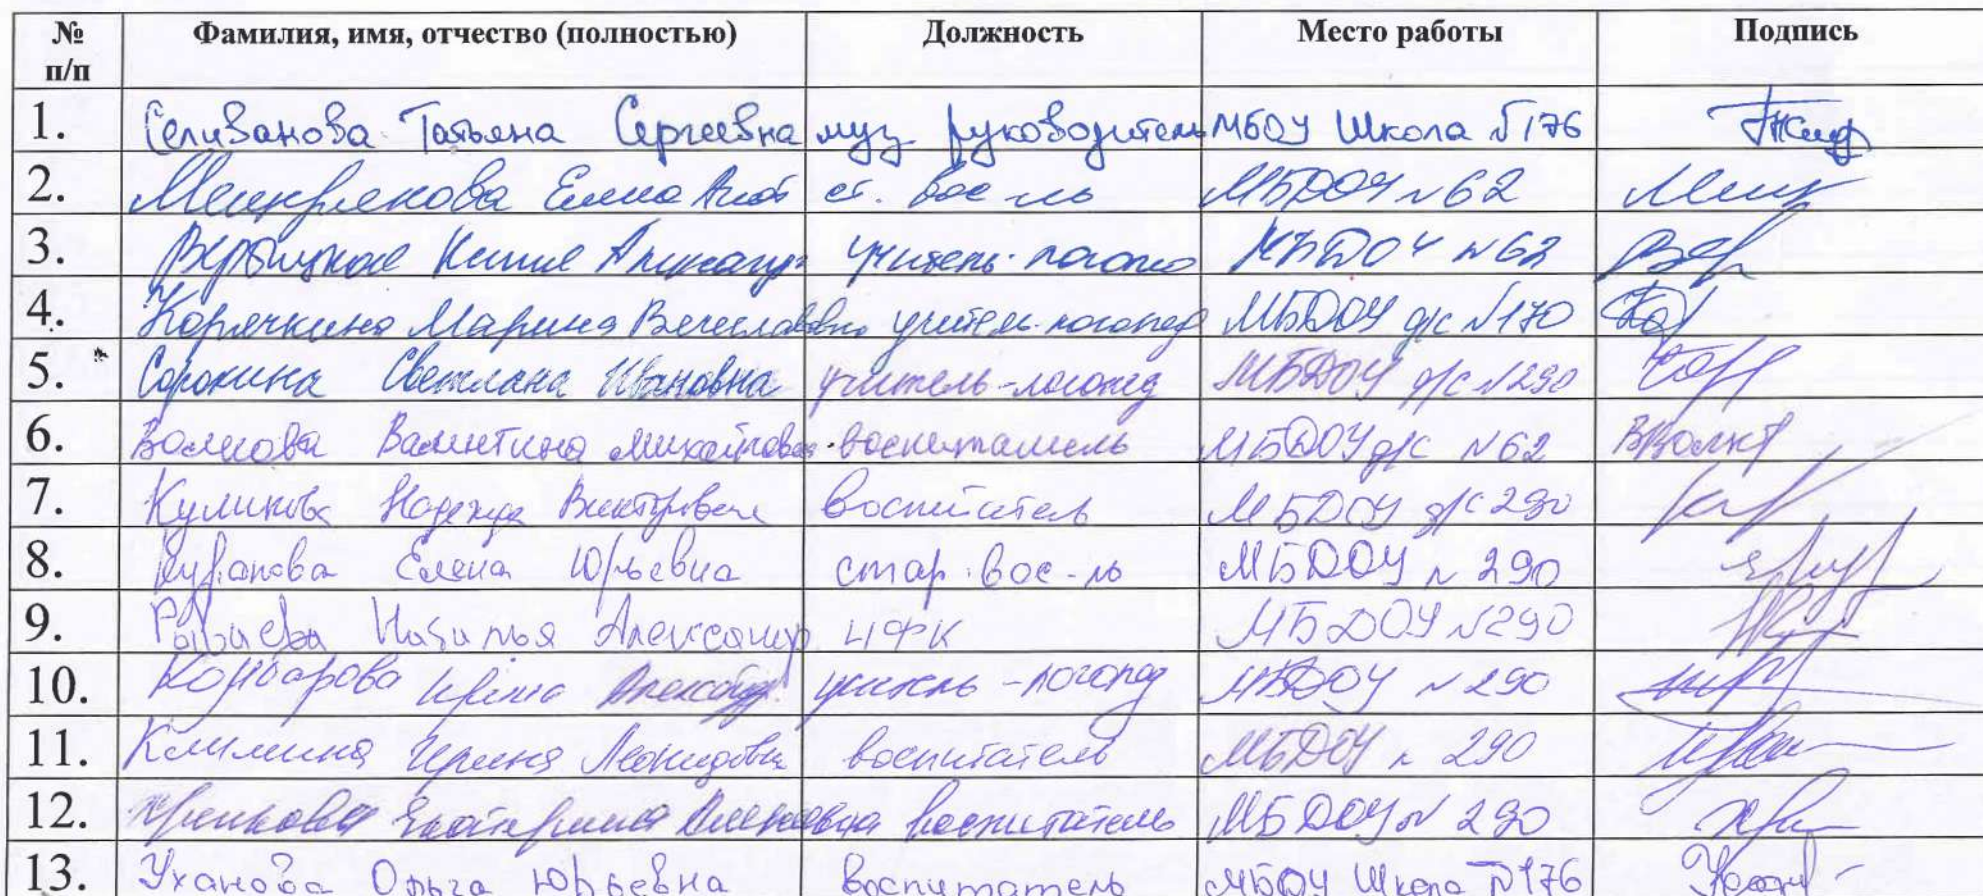 № п/п Фамилия, имя, отчество (полностью) Должность Место работы Подпись
1. Селиванова Татьяна Сергеевна муз руководитель МБОУ Школа №176
2. Елена ст. вос-ль МБДОУ №62
3. учитель-логопед МБДОУ №62
4. Корячкина Марина Вячеславовна учитель-логопед МБДОУ д/с №170
5. Сорокина Светлана Ивановна учитель-логопед МБДОУ д/с №290
6. Волкова Валентина Михайловна воспитатель МБДОУ д/с №62
7. Куликова Надежда Викторовна воспитатель МБДОУ д/с 290
8. Елена Юрьевна стар. вос-ль МБДОУ № 290
9. Наталья Александр ИФК МБДОУ №290
10. Ирина Александр. учитель-логопед МБДОУ № 290
11. Климина Ирина Леонидовна воспитатель МБДОУ № 290
12. Екатерина воспитатель МБДОУ № 290
13. Уханова Ольга Юрьевна воспитатель МБОУ Школа №176